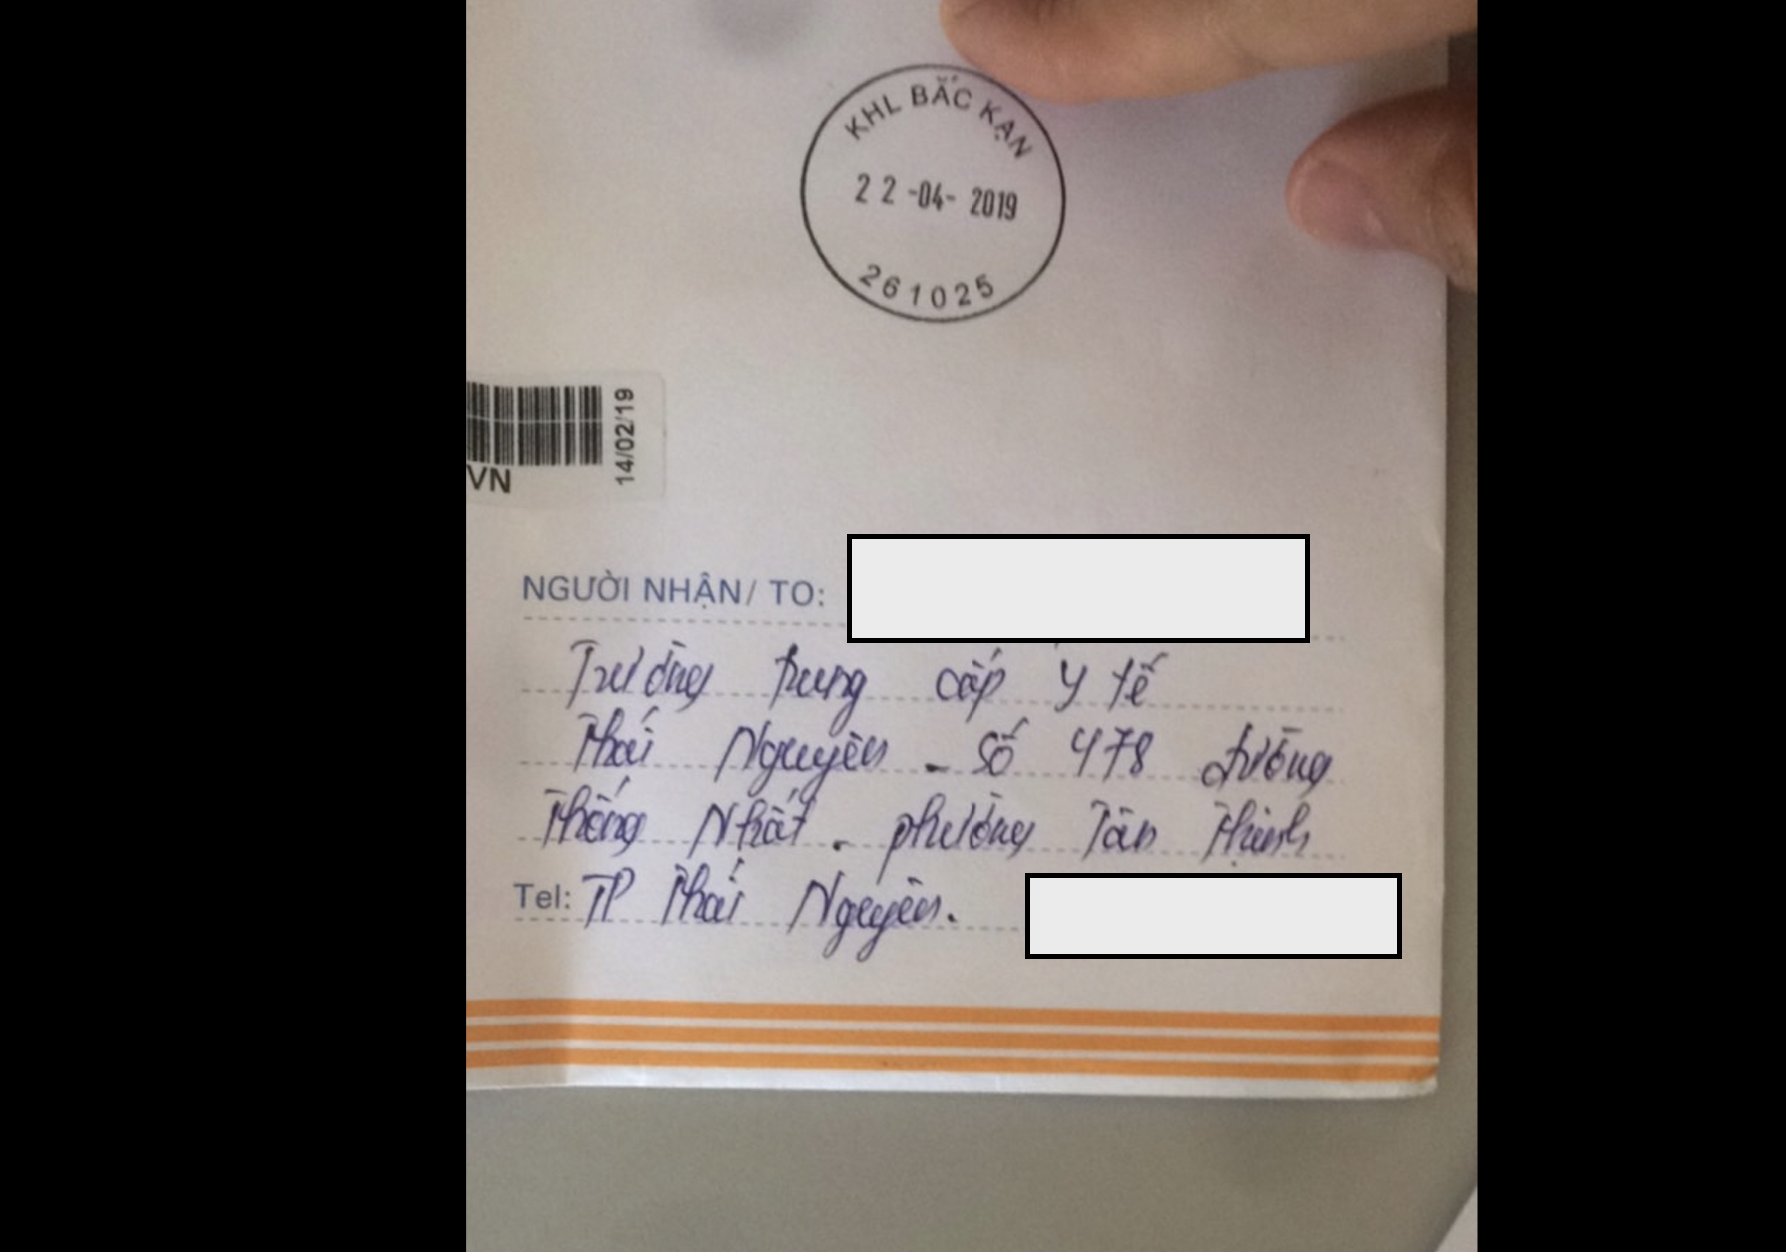 KHL BẮC KẠN
22-04-2019
261025
14/02/19
VN
NGƯỜI NHẬN/ TO:
Trường trung cấp y tế
Thái Nguyên - Số 478 đường
Thống Nhất - phường Tân Thịnh
Tel: TP Thái Nguyên.